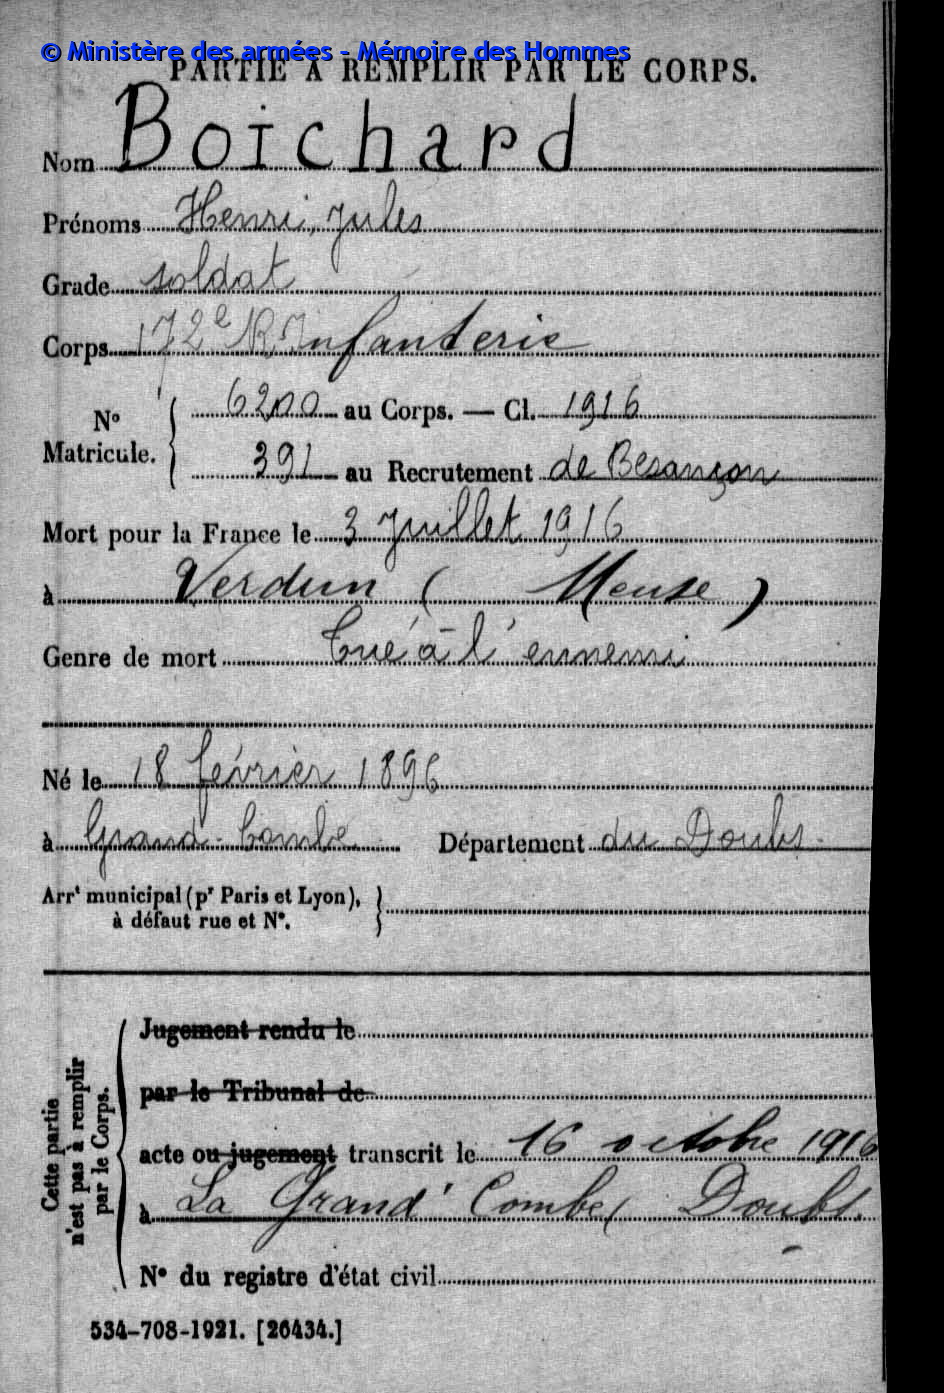 © Ministère des armées - Mémoire des Hommes
PARTIE À REMPLIR PAR LE CORPS.
Nom Boichard
Prénoms Henri, Jules
Grade soldat
Corps 172e R Infanterie
N° Matricule. { 6200 au Corps. — Cl. 1916
391 au Recrutement de Besançon
Mort pour la France le 3 Juillet 1916
à Verdun ( Meuse )
Genre de mort Tué à l'ennemi
Né le 18 février 1896
à Grand-Combe Département du Doubs
Arrt municipal (pr Paris et Lyon), à défaut rue et N°. }
Cette partie n'est pas à remplir par le Corps.
Jugement rendu le
par le Tribunal de
acte ou jugement transcrit le 16 octobre 1916
à La Grand' Combe ( Doubs.
N° du registre d'état civil
534-708-1921. [26434.]